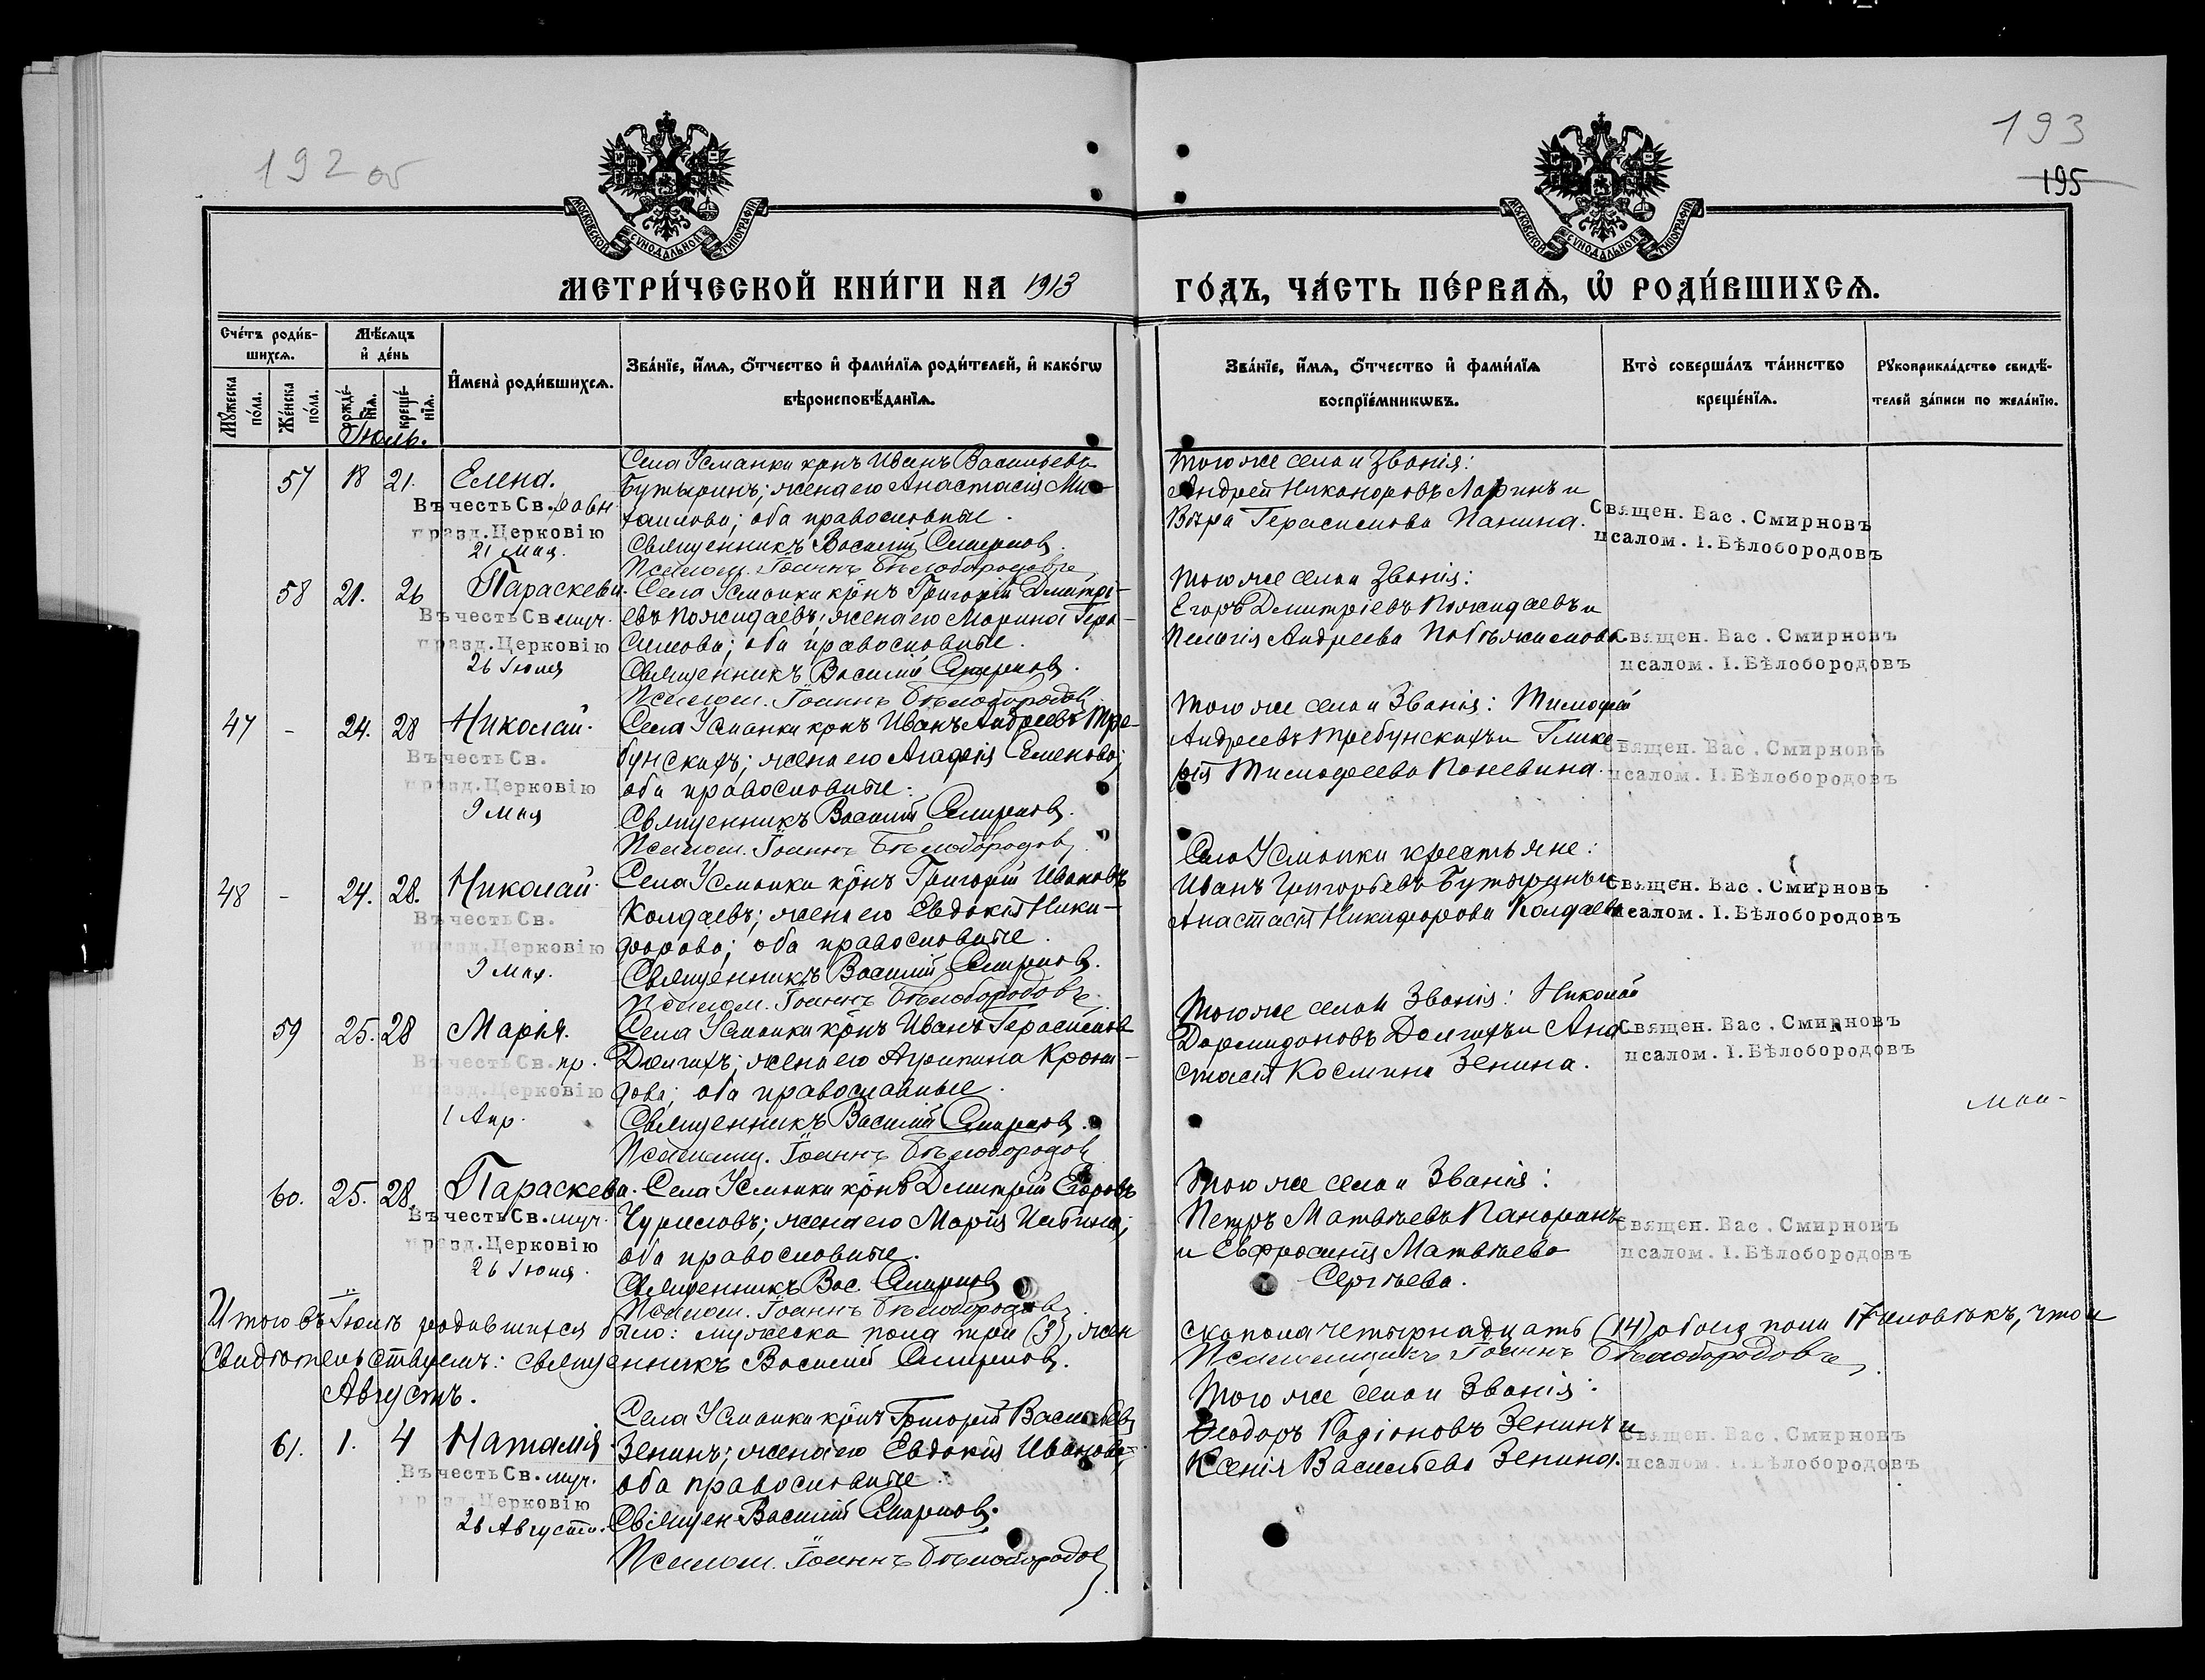 192 об
193
195
МОСКОВСКОЙ СѴНОДАЛЬНОЙ ТИПОГРАФІИ
МОСКОВСКОЙ СѴНОДАЛЬНОЙ ТИПОГРАФІИ
МЕТРИ́ЧЕСКОЙ КНИ́ГИ НА 1913 ГО́ДЪ, ЧА́СТЬ ПЕ́РВАѦ, Ѡ РОДИ́ВШИХСѦ.
Сче́тъ роди́в-
шихсѧ.
Мꙋжеска по́ла.
Же́нска по́ла.
Мѣ́сѧцъ
и҆ де́нь
рожде́-нїѧ.
креще́-нїѧ.
И҆мена̀ роди́вшихсѧ.
Зва́нїе, и҆́мѧ, ѻ҆́тчество и҆ фами́лїѧ роди́телей, и҆ како́гѡ
вѣроисповѣ́данїѧ.
Зва́нїе, и҆́мѧ, ѻ҆́тчество и҆ фами́лїѧ
воспрїе́мникѡвъ.
Кто̀ соверша́лъ та́инство
креще́нїѧ.
Рꙋкоприкла́дство свидѣ́-
телей за́писи по жела́нїю.
Іюль.
57 18 21. Елена.
Въ честь Св. равн.
празд. Церковію
21 Мая.
Села Усманки крнъ Иванъ Васильевъ
Бутыринъ; жена его Анастасія Ми-
хаилова; оба православные.
Священникъ Василій Смирновъ.
Псалом. Іоаннъ Бѣлобородовъ
Того же села и званія:
Андрей Никаноровъ Ларинъ и
Вѣра Герасимова Панина.
Священ. Вас. Смирновъ
псалом. І. Бѣлобородовъ
58 21. 26 Параскева.
Въ честь Св. муч.
празд. Церковію
26 Іюля
Села Усманки крнъ Григорій Дмитрі-
евъ Пожидаевъ; жена его Марина Гера-
симова; оба православные.
Священникъ Василій Смирновъ.
Псалом. Іоаннъ Бѣлобородовъ
Того же села и званія:
Егоръ Дмитріевъ Пожидаевъ и
Пелагія Андреева
Священ. Вас. Смирновъ
псалом. І. Бѣлобородовъ
47 - 24. 28 Николай.
Въ честь Св.
празд. Церковію
9 Мая
Села Усманки крнъ Иванъ Андреевъ Тре-
бунскихъ; жена его Агафія Семенова;
оба православные.
Священникъ Василій Смирновъ.
Псалом. Іоаннъ Бѣлобородовъ.
Того же села и званія: Тимофей
Андреевъ Требунскихъ и Глике-
рія Тимофеева
Священ. Вас. Смирновъ
псалом. І. Бѣлобородовъ
48 - 24. 28. Николай.
Въ честь Св.
празд. Церковію
9 Мая.
Села Усманки крнъ Григорій Ивановъ
Колдаевъ; жена его Евдокія Ники-
форова; оба православные.
Священникъ Василій Смирновъ.
Псалом. Іоаннъ Бѣлобородовъ.
Села Усманки крестьяне:
Иванъ Григорьевъ Бутыринъ и
Анастасія Никифорова Колдаева
Священ. Вас. Смирновъ
псалом. І. Бѣлобородовъ
59 25. 28 Марія.
Въ честь Св. пр.
празд. Церковію
1 Апр.
Села Усманки крнъ Иванъ Герасимовъ
Долгихъ; жена его Агрипина
оба православные.
Священникъ Василій Смирновъ.
Псаломщ. Іоаннъ Бѣлобородовъ
Того же села и званія: Николай
Дормидоновъ Долгихъ и Ана-
стасія Космина Зенина.
Священ. Вас. Смирновъ
псалом. І. Бѣлобородовъ
60. 25. 28. Параскева.
Въ честь Св. муч.
празд. Церковію
26 Іюля.
Села Усманки крнъ Дмитрій Егоровъ
Чуриловъ; жена его Марія
оба православные.
Священникъ Вас. Смирновъ
Псалом. Іоаннъ Бѣлобородовъ.
Того же села и званія:
Петръ Матвѣевъ
и Евфросинія Матвѣева
Сергѣева.
Священ. Вас. Смирновъ
псалом. І. Бѣлобородовъ
Итого въ Іюлѣ родившихся было: мужеска пола три (3), жен
ска пола четырнадцать (14) обоего пола 17 человѣкъ, что и
свидѣтельствуемъ: священникъ Василій Смирновъ.
Псаломщикъ Іоаннъ Бѣлобородовъ
Августъ.
61. 1. 4 Наталія.
Въ честь Св. муч.
празд. Церковію
26 Августа.
Села Усманки крнъ Григорій Васильевъ
Зенинъ; жена его Евдокія Иванова;
оба православные.
Священ. Василій Смирновъ.
Псалом. Іоаннъ Бѣлобородовъ
Того же села и званія:
Ѳеодоръ Родіоновъ Зенинъ и
Ксенія Васильева Зенина.
Священ. Вас. Смирновъ
псалом. І. Бѣлобородовъ